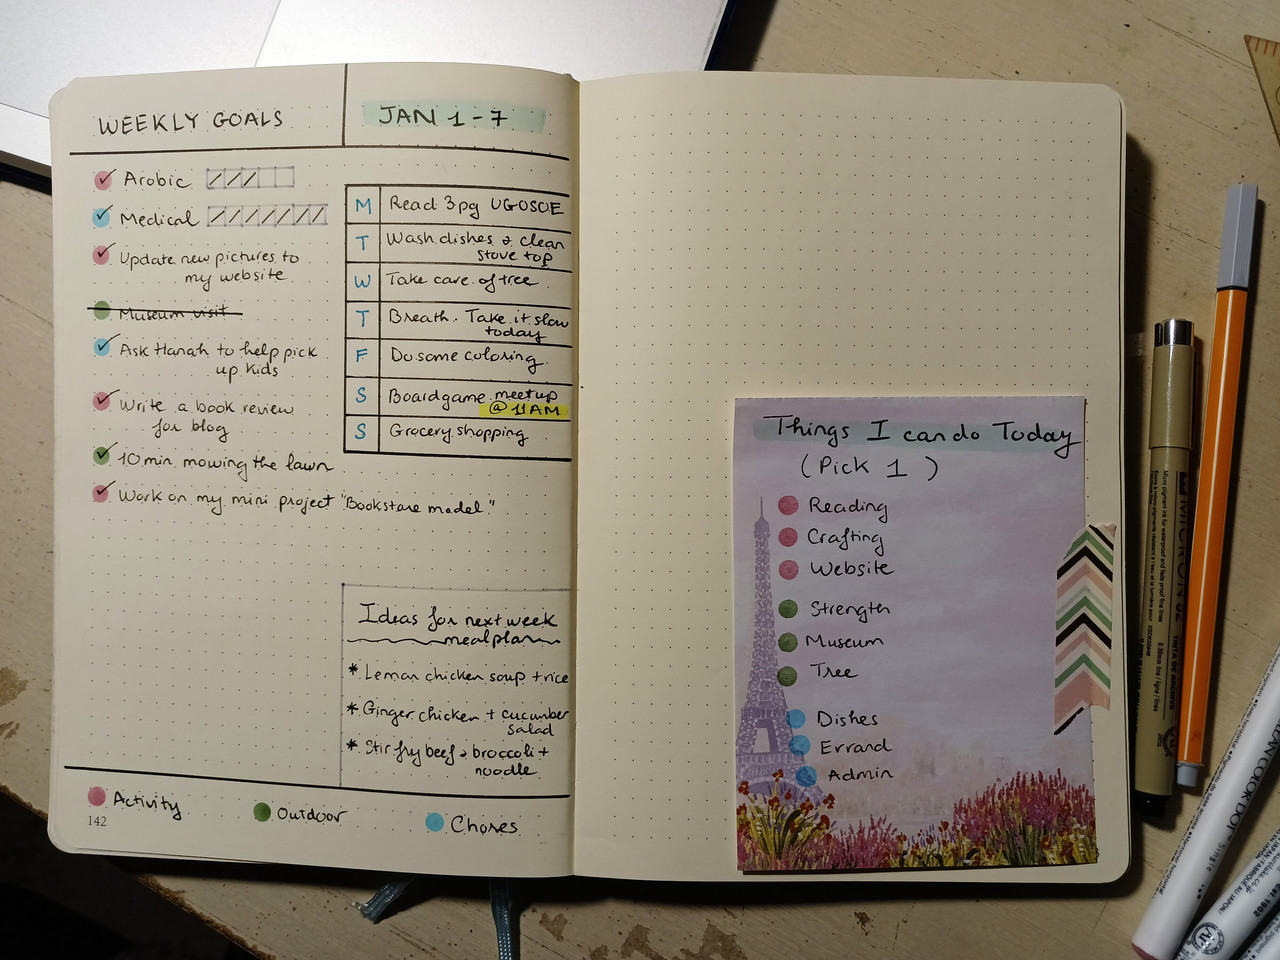 WEEKLY GOALS
JAN 1-7
Arobic
Medical
Update new pictures to
my website
Museum visit
Ask Hanah to help pick
up kids
Write a book review
for blog
10 min mowing the lawn
Work on my mini project "Bookstore model"
M Read 3pg UGOSOE
T Wash dishes & clean
stove top
W Take care of tree
T Breath. Take it slow
today
F Do some coloring
S Boardgame meetup
@ 11AM
S Grocery shopping
Ideas for next week
meal plan
* Lemon chicken soup + rice
* Ginger chicken + cucumber
salad
* Stir fry beef & broccoli +
noodle
Activity
Outdoor
Chores
142
Things I can do Today
(Pick 1)
Reading
Crafting
Website
Strength
Museum
Tree
Dishes
Errand
Admin
MICRON 02